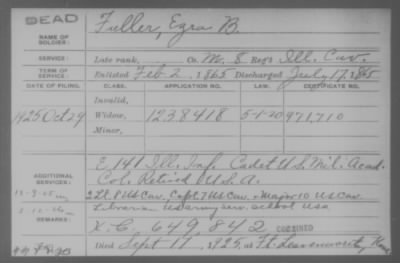 DEAD
NAME OF SOLDIER: Fuller, Ezra B.
SERVICE: Late rank, Co. M. 8 Reg't Ill. Cav.
TERM OF SERVICE: Enlisted Feb 2, 1865 Discharged July 17, 1865
DATE OF FILING. CLASS. APPLICATION NO. LAW. CERTIFICATE NO.
Invalid,
1925 Oct 29 Widow, 1238418 5-1-20 971,710
Minor,
ADDITIONAL SERVICES: E, 141 Ill. Inf. Cadet U.S. Mil. Acad.
Col. Retired U.S.A.
2 Lt. 8 US Cav, Capt. 7 US Cav, Major 10 US Cav
Librarian US army serv. School USA
REMARKS: X.C. 649,842 COMBINED
Died Sept 17, 1925, at Ft. Leavenworth, Kans